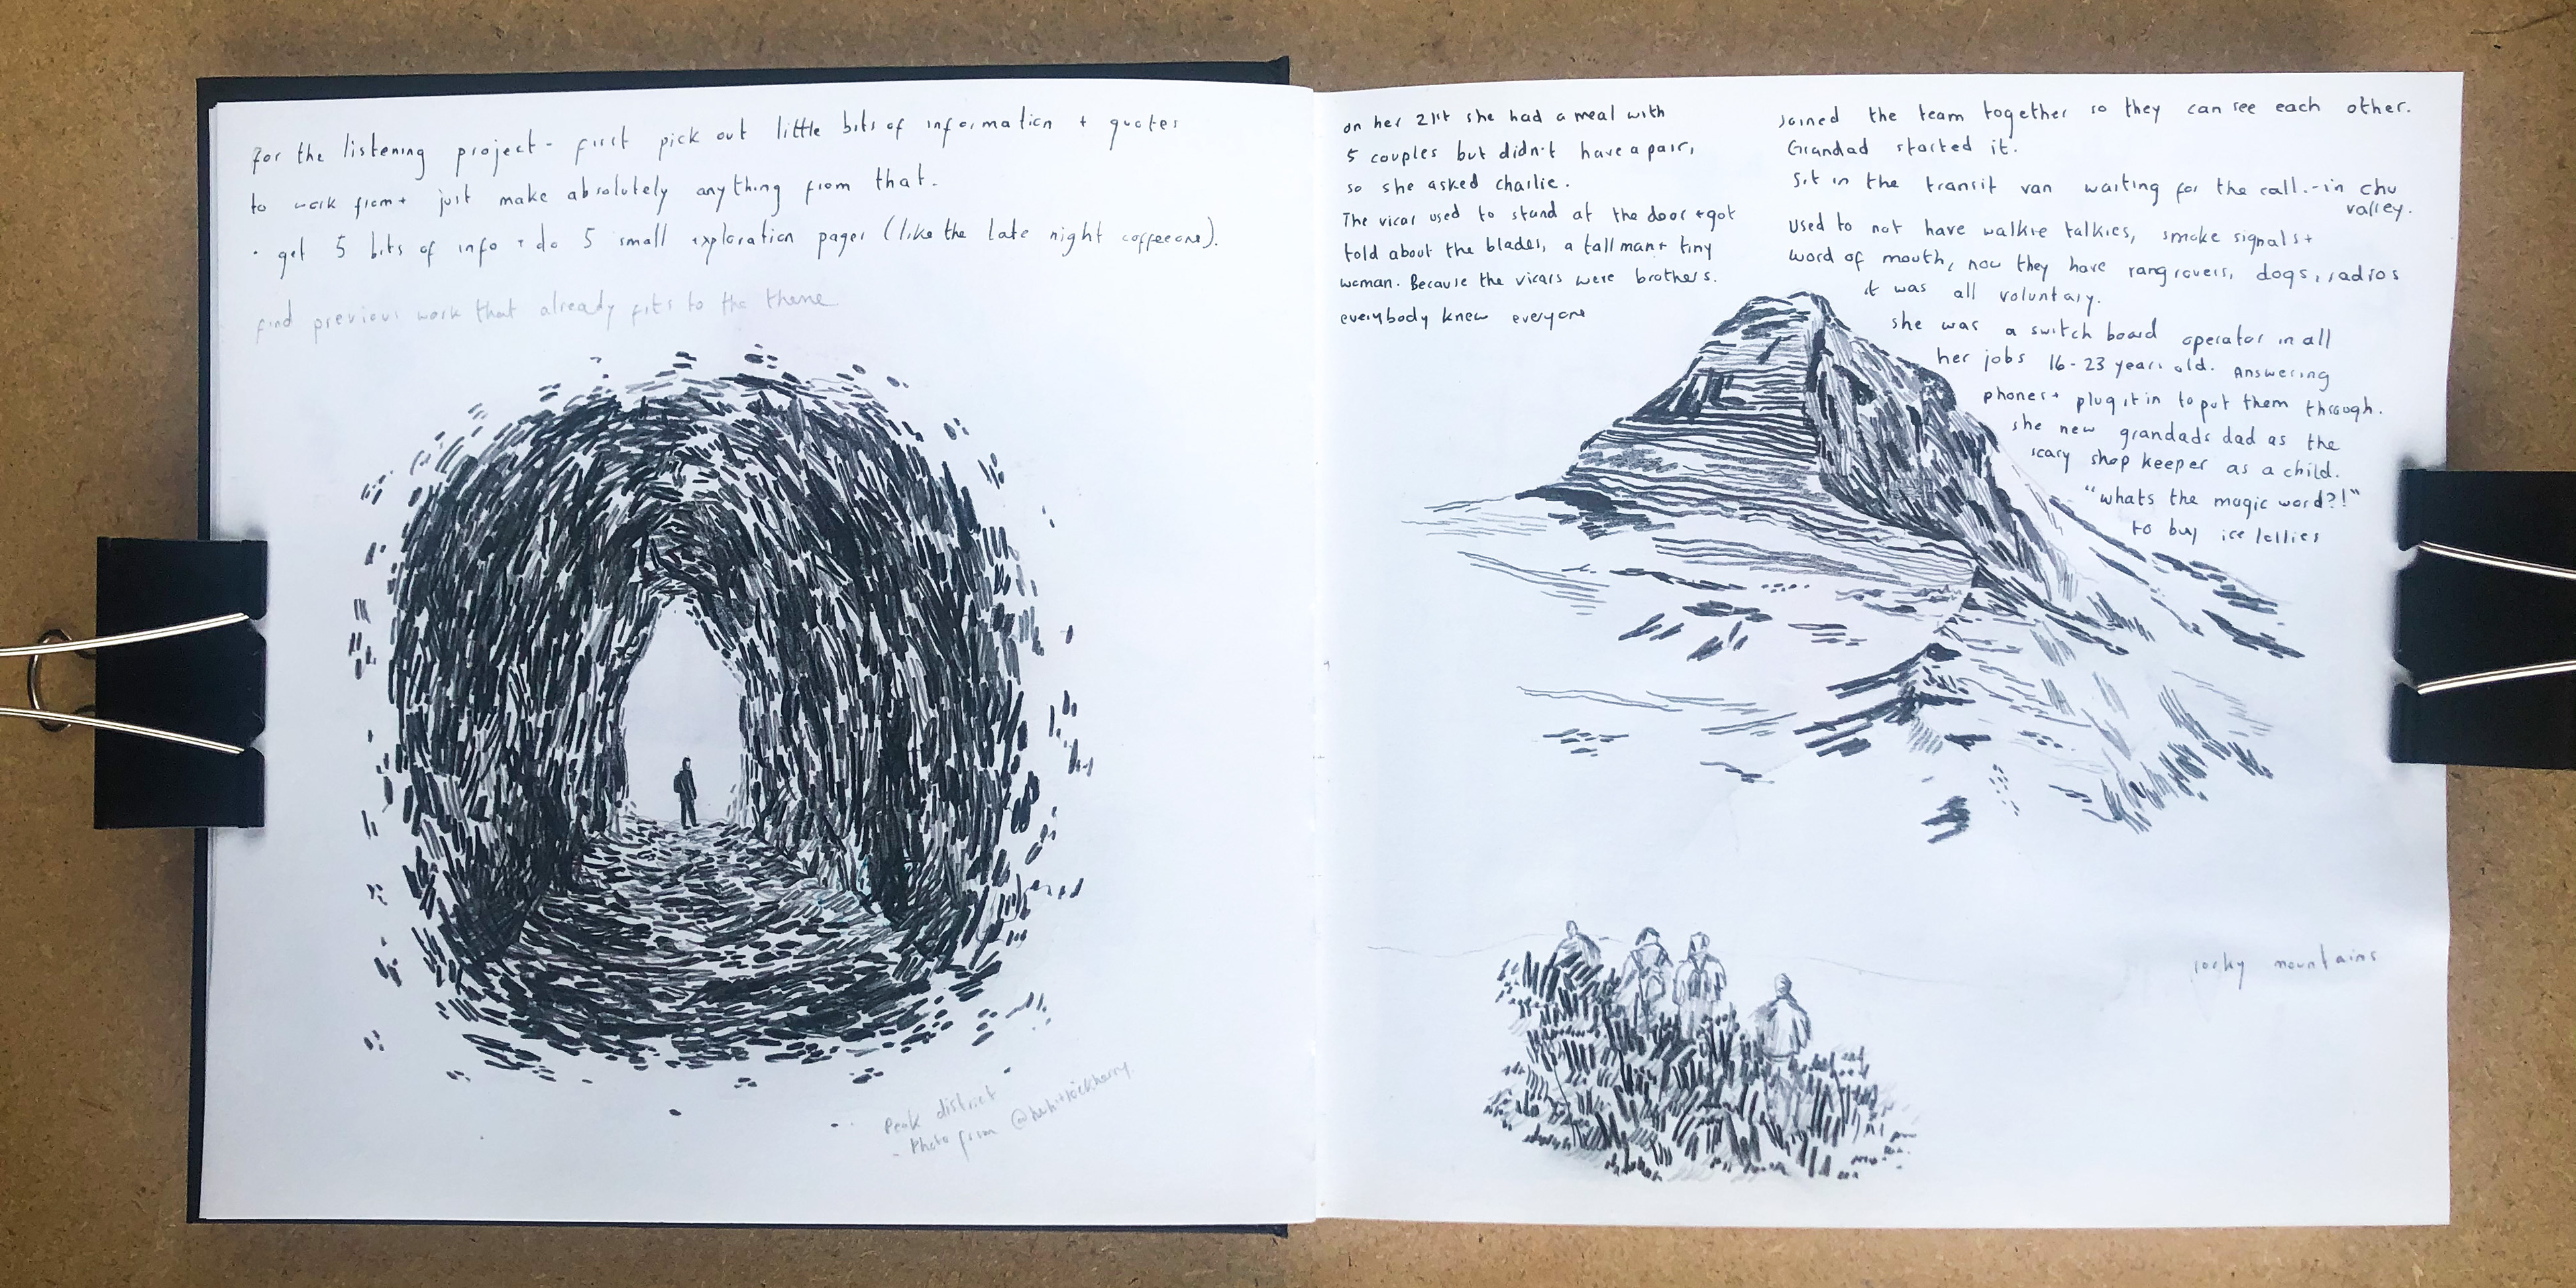 for the listening project - first pick out little bits of information + quotes
to work from + just make absolutely anything from that.
· get 5 bits of info + do 5 small exploration pages (like the late night coffee one).
find previous work that already fits to the theme
Peak district
- Photo from
on her 21st she had a meal with
5 couples but didn't have a pair,
so she asked charlie.
The vicar used to stand at the door + got
told about the blades, a tall man + tiny
woman. Because the vicars were brothers.
everybody knew everyone
joined the team together so they can see each other.
Grandad started it.
Sit in the transit van waiting for the call. - in chu
valley.
used to not have walkie talkies, smoke signals +
word of mouth, now they have rangrovers, dogs, radios
it was all voluntary.
she was a switch board operator in all
her jobs 16-23 years old. Answering
phones + plug it in to put them through.
she new grandads dad as the
scary shop keeper as a child.
"whats the magic word?!"
to buy ice lollies
rocky mountains